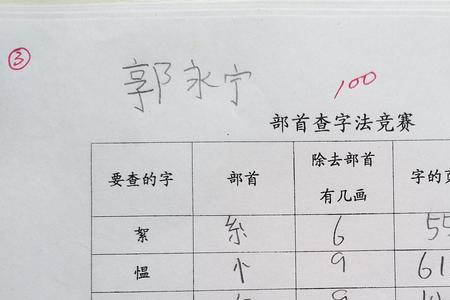 ③
郭永宁
100
部首查字法竞赛
要查的字 部首 除去部首有几画 字的页
絮 糸 6 55
愠 忄 9 61